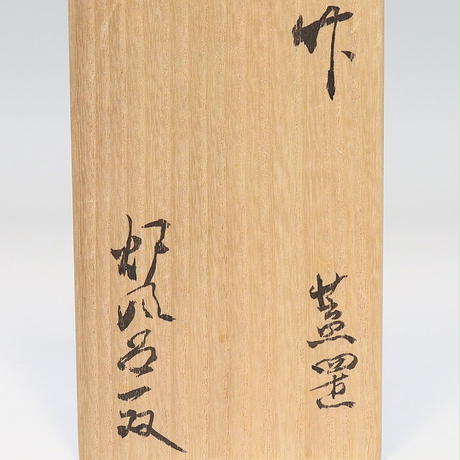 竹
蓋置
炉風呂一双